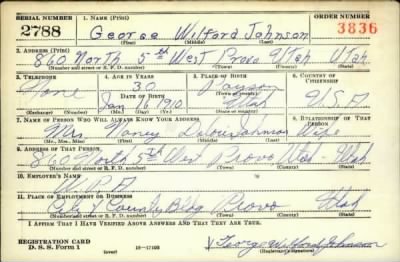 SERIAL NUMBER 1. NAME (Print) ORDER NUMBER
2788 George Wilford Johnson 3836
(First) (Middle) (Last)
2. ADDRESS (Print)
860 North 5th West Provo Utah Utah
(Number and street or R. F. D. number) (Town) (County) (State)
3. TELEPHONE 4. AGE IN YEARS 5. PLACE OF BIRTH 6. COUNTRY OF CITIZENSHIP
None 30 Payson
DATE OF BIRTH (Town or county)
Jan 16 1910 Utah U.S.A
(Mo.) (Day) (Yr.) (State or country)
7. NAME OF PERSON WHO WILL ALWAYS KNOW YOUR ADDRESS 8. RELATIONSHIP OF THAT PERSON
Mrs. Johnson Wife
(Mr., Mrs., Miss) (First) (Middle) (Last)
9. ADDRESS OF THAT PERSON
860 North 5th West Provo Utah Utah
(Number and street or R. F. D. number) (Town) (County) (State)
10. EMPLOYER'S NAME
W.P.A
11. PLACE OF EMPLOYMENT OR BUSINESS
City & County Bldg Provo Utah
(Number and street or R. F. D. number) (Town) (County) (State)
I AFFIRM THAT I HAVE VERIFIED ABOVE ANSWERS AND THAT THEY ARE TRUE.
REGISTRATION CARD
D. S. S. Form 1 George Wilford Johnson
(Registrant's signature)